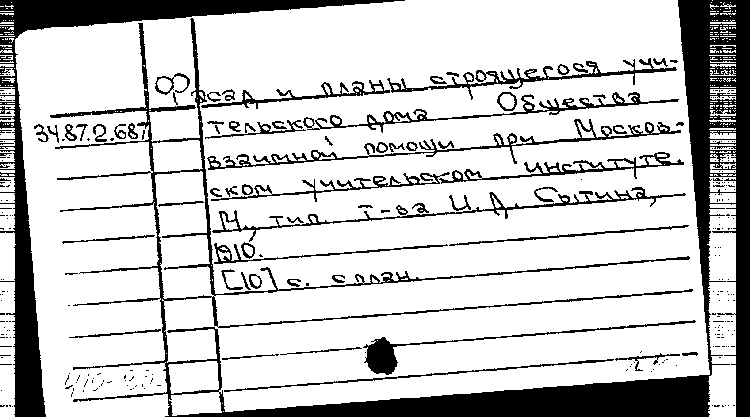 Фасад и планы строящегося учи-
34.87.2.687
тельского дома Общества
взаимной помощи при Москов-
ском учительском институте.
М., тип. т-ва И. Д. Сытина,
1910.
[10] с. с план.